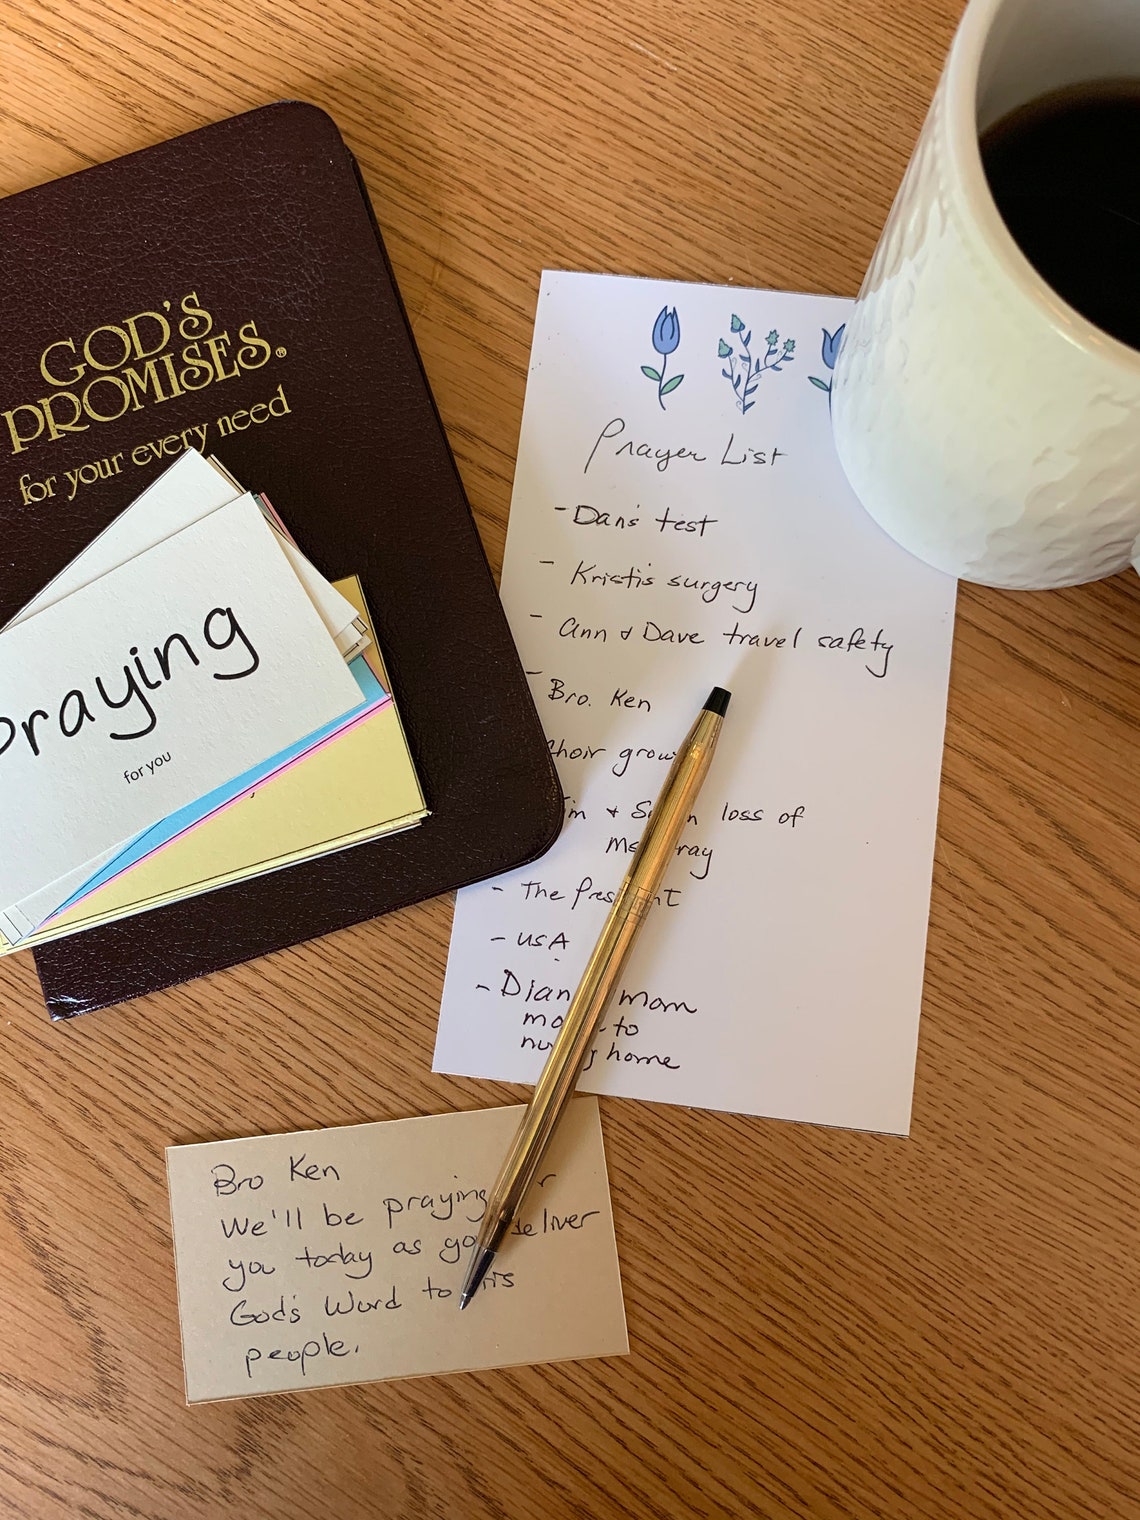 GOD'S
PROMISES®
for your every need
praying
for you
Prayer List
- Dan's test
- Kristi's surgery
- Ann & Dave travel safety
- Bro. Ken
Choir
& loss of
- The President
- USA
- mom
to
home
Bro Ken
We'll be praying
you today as you deliver
God's Word to His
people.